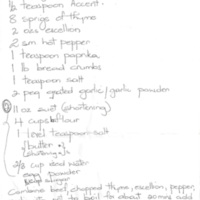 ½ teaspoon Accent.
8 sprigs of thyme
2 ozs escellion
2 sm hot pepper
1 teaspoon paprika
1 lb bread crumbs
1 teaspoon salt
2 peg grated garlic/garlic powder
11 oz suet (shortening)
4 cups flour
1 level teaspoon salt
butter
shortening
2/3 cup cold water
powder
Combine beef, chopped thyme, escellion, pepper,
to boil to about 20 mins add